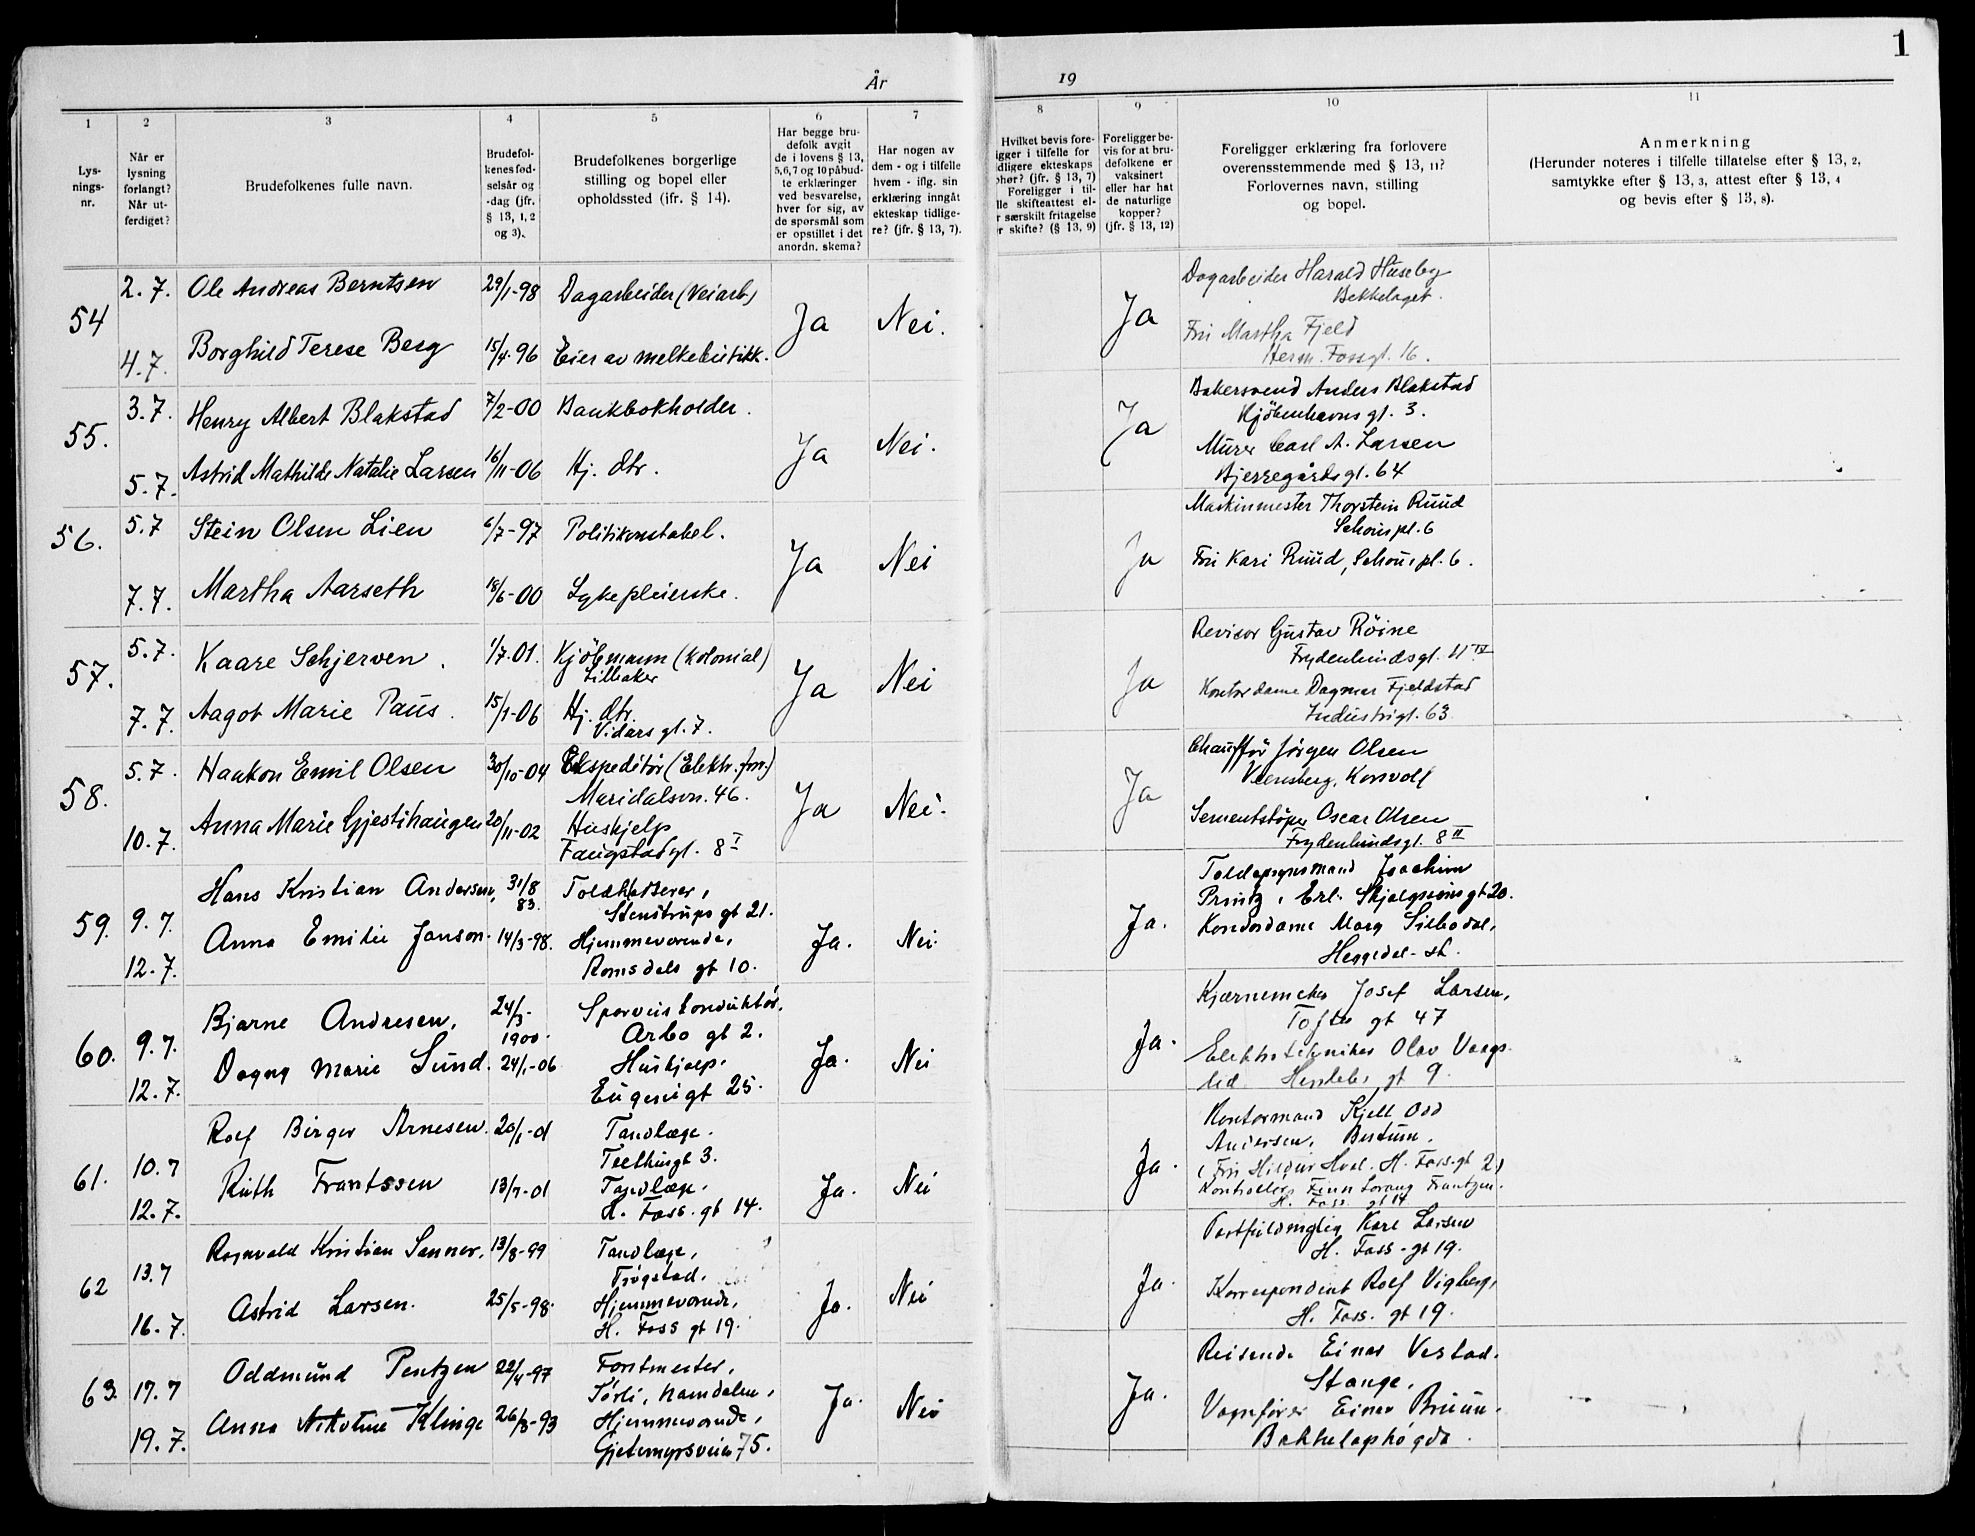 1
År
19
1
2
3
4
5
6
7
8
9
10
11
Lys-
nings-
nr.
Når er
lysning
forlangt?
Når ut-
ferdiget?
Brudefolkenes fulle navn.
Brudefol-
kenes fød-
selsår og
-dag (jfr.
§ 13, 1, 2
og 3).
Brudefolkenes borgerlige
stilling og bopel eller
opholdssted (ifr. § 14).
Har begge bru-
defolk avgit
de i lovens § 13,
5,6,7 og 10 påbud-
te erklæringer
ved besvarelse,
hver for sig, av
de spørsmål som
er opstillet i det
anordn. skema?
Har nogen av
dem - og i tilfelle
hvem - iflg. sin
erklæring inngåt
ekteskap tidlige-
re? (jfr. § 13, 7).
Hvilket bevis fore-
igger i tilfelle for
dligere ekteskaps
phør? (jfr. § 13, 7)
Foreligger i til-
lle skifteattest el-
r særskilt fritagelse
r skifte? (§ 13, 9)
Foreligger be-
vis for at bru-
defolkene er
vaksinert
eller har hat
de naturlige
kopper?
(jfr. § 13, 12)
Foreligger erklæring fra forlovere
overensstemmende med § 13, 11?
Forlovernes navn, stilling
og bopel.
Anmerkning
(Herunder noteres i tilfelle tillatelse efter § 13, 2,
samtykke efter § 13, 3, attest efter § 13, 4
og bevis efter § 13, 8).
54
2.7.
4.7.
Ole Andreas Berntsen
Borghild Terese Berg
29/1-98
15/4-96
Dagarbeider (Veiarb.)
Eier av melkebutikk.
Ja
Nei.
Ja
Dagarbeider Harald Huseby
Bekkelaget.
Fru Martha Fjeld
Herm. Fossgt. 16.
55.
3.7.
5.7.
Henry Albert Blakstad
Astrid Mathilde Natalie Larsen
7/2-00
16/11-06
Bankbokholder.
Hj. dtr.
Ja
Nei.
Ja
Bakersvend Anders Blakstad
Kjøbenhavns gt. 3.
Murer Carl A. Larsen
Bjerregårds gt. 64
56.
5.7
7.7.
Stein Olsen Lien
Martha Aarseth
6/7-97
18/6-00
Politikonstabel.
Sykepleierske.
Ja
Nei
Ja
Maskinmester Thorstein Ruud
Schous pl. 6
Fru Kari Ruud, Schous pl. 6.
57.
5.7.
7.7.
Kaare Schjerven.
Aagot Marie Paus.
1/7-01.
15/1-06
Kjøbmann (kolonial)
Lilleaker
Hj. dtr.
Vidars gt. 7.
Ja
Nei
Ja
Revisor Gustav Røine
Frydenlundsgt. 11 IV
Kontordame Dagmar Fjeldstad
Industrigt. 63
58.
5.7.
10.7.
Haakon Emil Olsen
Anna Marie Gjestihaugen
30/10-04
20/11-02
Ekspeditør (Elektr. frm.)
Maridalsvn. 46.
Huskjelp
Faugstadgt. 8 I
Ja
Nei.
Ja
Chauffør Jørgen Olsen
Korsvoll
Sementstøper Oscar Olsen
Frydenlundsgt. 8 II
59.
9.7.
12.7.
Hans Kristian Andersen,
Anna Emilie Janson.
31/8
83.
14/3-98.
Toldkasserer,
Stenstrups gt 21.
Hjemmeværende,
Romsdals gt 10.
Ja.
Nei.
Ja.
Toldopsynsmand Joachim
Printz, Erl. Skjalgsøns gt 20.
Kontordame Marg Sillbodal,
Heggedal-st.
60.
9.7.
12.7.
Bjarne Andresen,
Dagny Marie Sund.
24/3-
1900.
24/1-06
Sporveiskonduktør,
Arbo gt 2.
Huskjelp.
Eugenigt 25.
Ja.
Nei
Ja.
Kjærnemaker Josef Larsen,
Toftes gt 47
Elektrotekniker Olav Vaags-
lid gt 9.
61.
10.7
12.7.
Rolf Birger Arnesen.
Ruth Frantssen
20/1-01
13/7-01
Tandlæge.
Teelhingt 3.
Tandlæge.
H. Foss. gt 14.
Ja.
Nei
Ja.
Kontormand Kjell Odd
Andersen, Bestum.
(Fru Hildur Hval. H. Foss. gt 2)
Kontrollør Finn Lorang Frantzen.
H. Foss gt 14
62
13.7
16.7.
Ragnvald Kristian Sanner.
Astrid Larsen.
13/8-99
25/5-98.
Tandlæge,
Trøgstad.
Hjemmeværende,
H. Foss gt 19.
Ja.
Nei
Ja.
Postfuldmægtig Karl Larsen
H. Foss-gt 19.
Korrespondent Rolf Vigberg,
H. Foss. gt 19.
63.
17.7
19.7.
Oddmund Pentzen
Anna Nikoline Klinge
22/4-97
26/8-93
Forstmester,
Tørli, Namdalen,
Hjemmeværende,
Gjetemyrsveien 75.
Ja.
Nei
Ja.
Reisende Einar Vestad.
Stange.
Vognfører Einar Bruun.
Bekkelagshøgda.